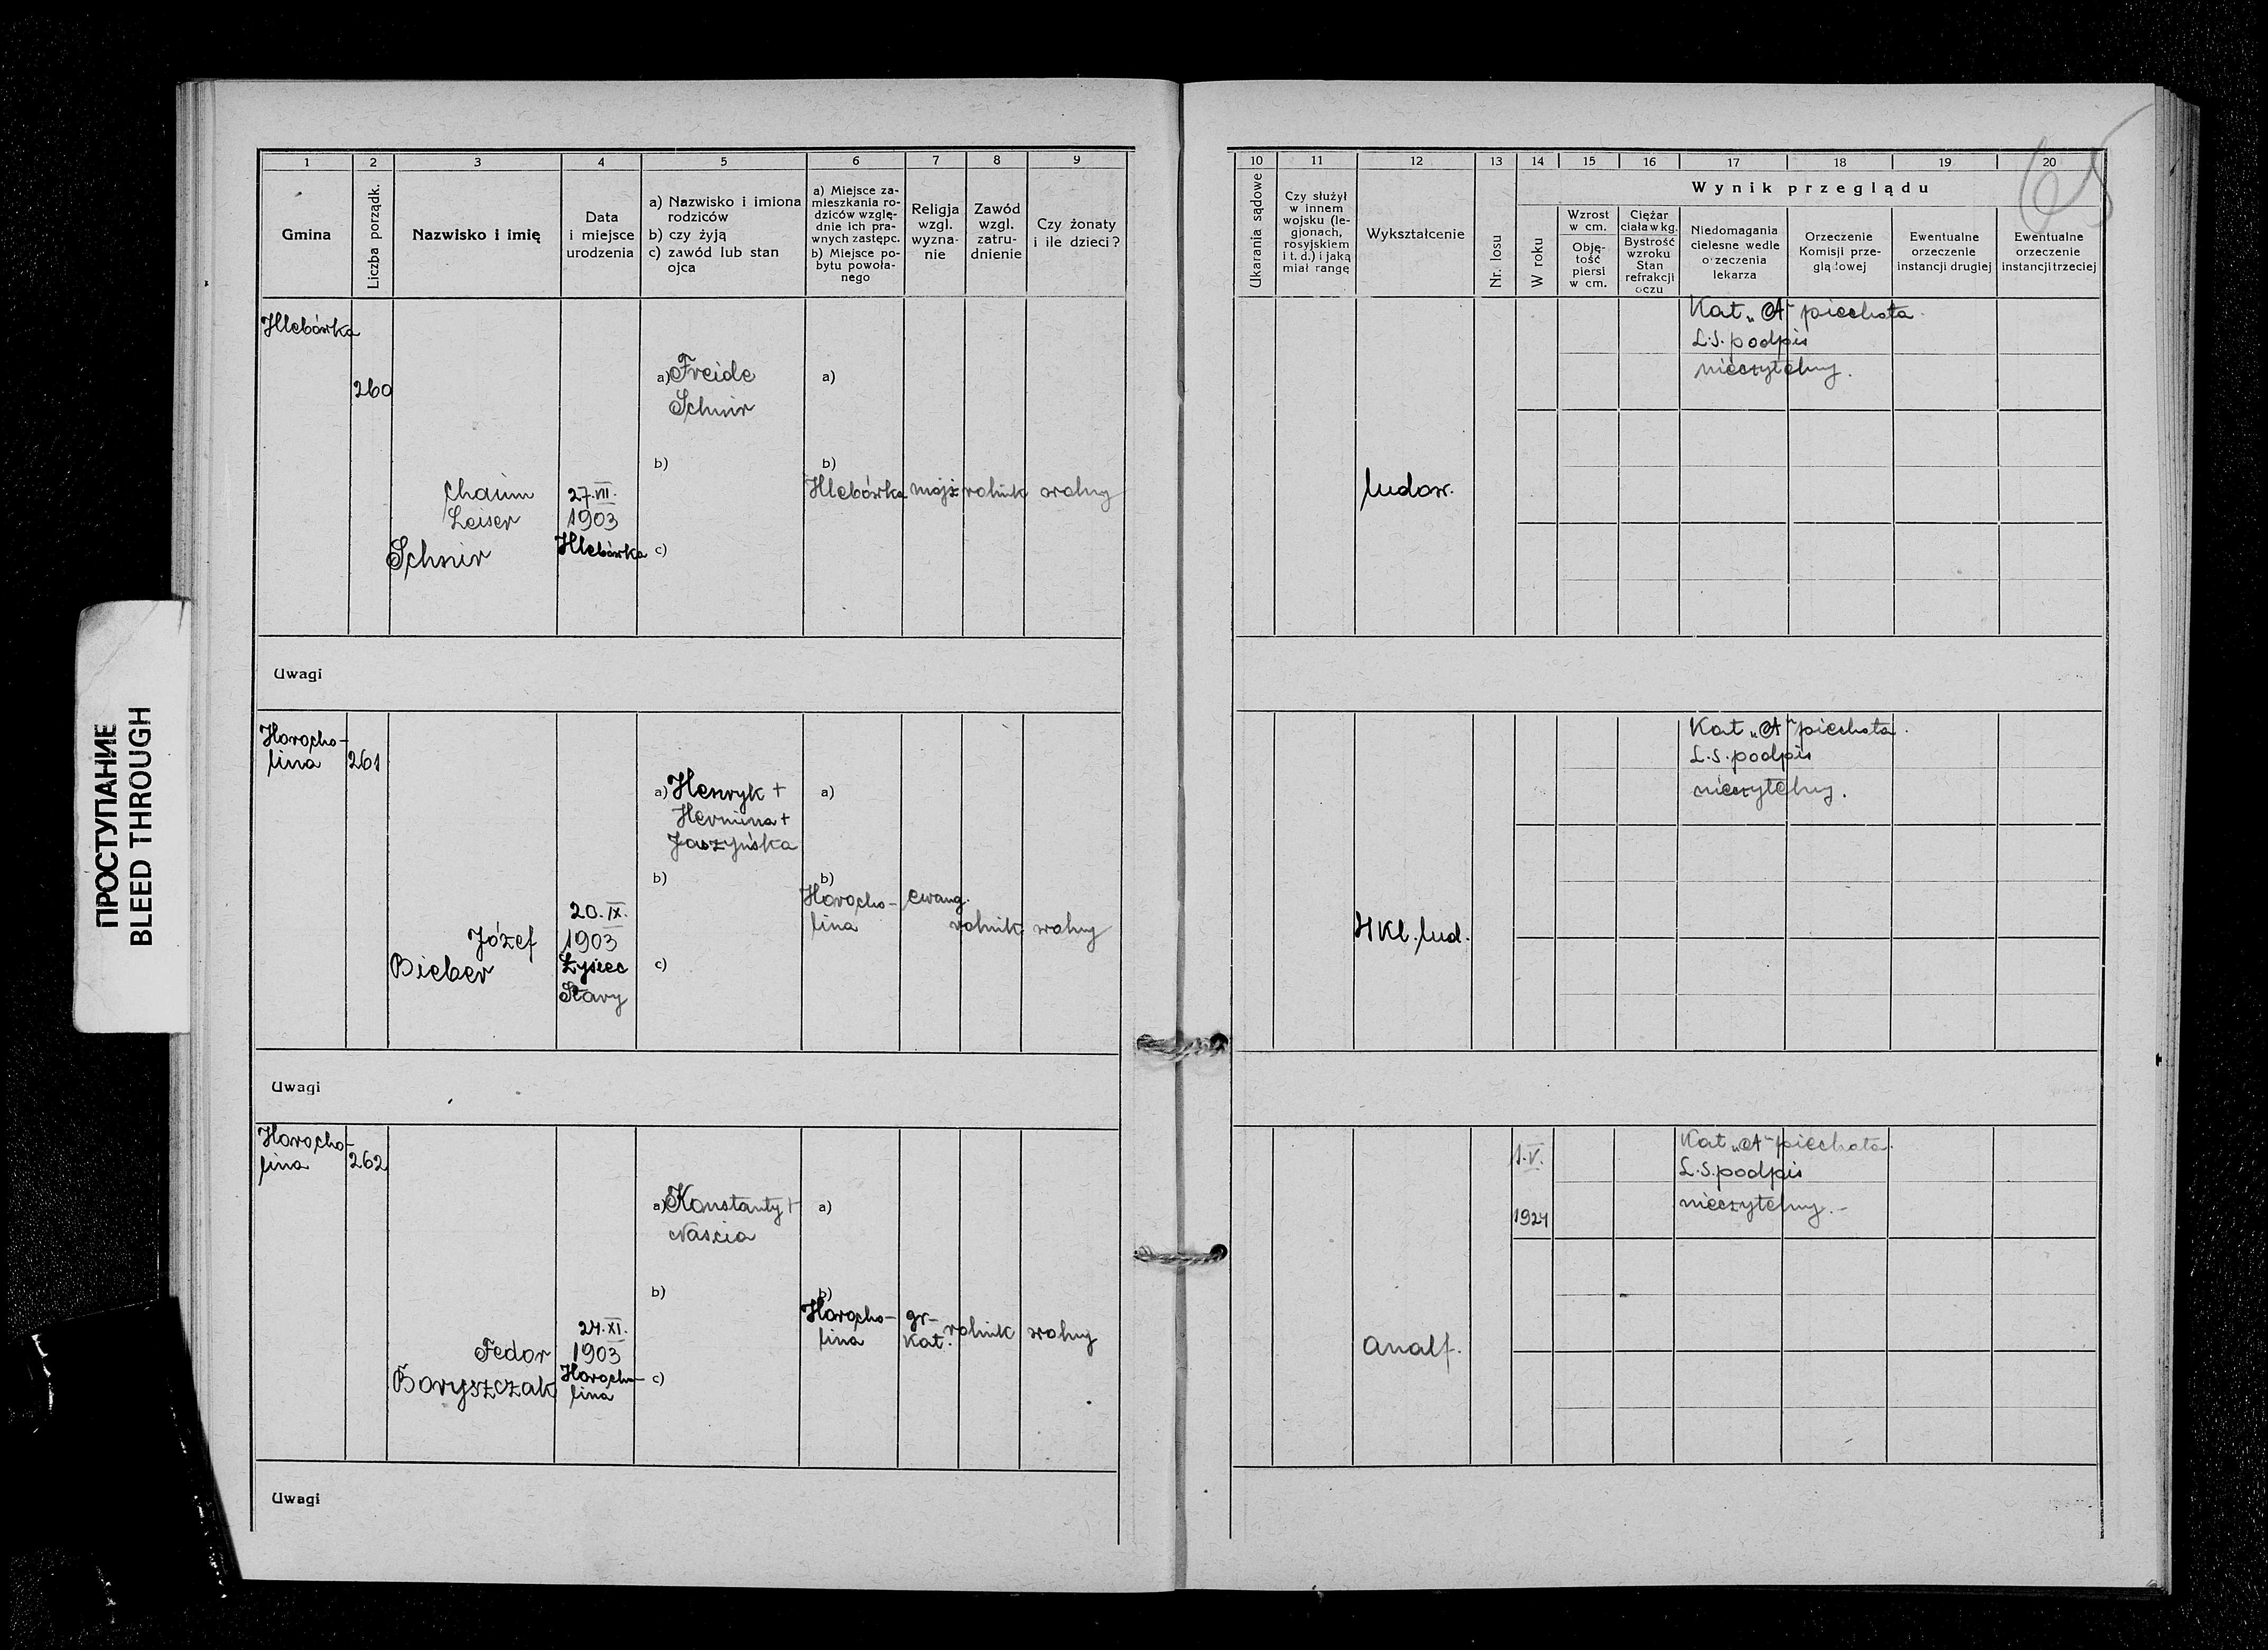 65
1 2 3 4 5 6 7 8 9
Gmina
Liczba porządk.
Nazwisko i imię
Data
i miejsce
urodzenia
a) Nazwisko i imiona
rodziców
b) czy żyją
c) zawód lub stan
ojca
a) Miejsce za-
mieszkania ro-
dziców wzglę-
dnie ich pra-
wnych zastępc.
b) Miejsce po-
bytu powoła-
nego
Religja
wzgl.
wyzna-
nie
Zawód
wzgl.
zatru-
dnienie
Czy żonaty
i ile dzieci?
10 11 12 13 14 15 16 17 18 19 20
Ukarania sądowe
Czy służył
w innem
wojsku (le-
gjonach,
rosyjskiem
i t. d.) i jaką
miał rangę
Wykształcenie
Nr. losu
Wynik przeglądu
W roku
Wzrost
w cm.
Obję-
tość
piersi
w cm.
Ciężar
ciała w kg.
Bystrość
wzroku
Stan
refrakcji
oczu
Niedomagania
cielesne wedle
orzeczenia
lekarza
Orzeczenie
Komisji prze-
glądowej
Ewentualne
orzeczenie
instancji drugiej
Ewentualne
orzeczenie
instancji trzeciej
Hlebówka
260
Chaim
Leiser
Schnir
27.VII.
1903
Hlebówka
a) Freide
Schnir
b)
c)
a)
b)
Hlebówka
mojż
rolnik
wolny
ludow.
Kat „A" piechota.
L.S. podpis
nieczytelny.
Uwagi
Horocho-
lina
261
Józef
Bieber
20.IX.
1903
Łysiec
Stary
a) Henryk +
Hermina +
Jaszyńska
b)
c)
a)
b)
Horocho-
lina
ewang.
rolnik
wolny
4 Kl. lud.
Kat „A" piechota.
L.S. podpis
nieczytelny.
Uwagi
Horocho-
lina
262
Fedor
Boryszczak
24.XI.
1903
Horocho-
lina
a) Konstanty +
Naścia
b)
c)
a)
b)
Horocho-
lina
gr-
kat.
rolnik
wolny
analf.
1.V.
1924
Kat „A" piechota.
L.S. podpis
nieczytelny.-
Uwagi
ПРОСТУПАНИЕ
BLEED THROUGH